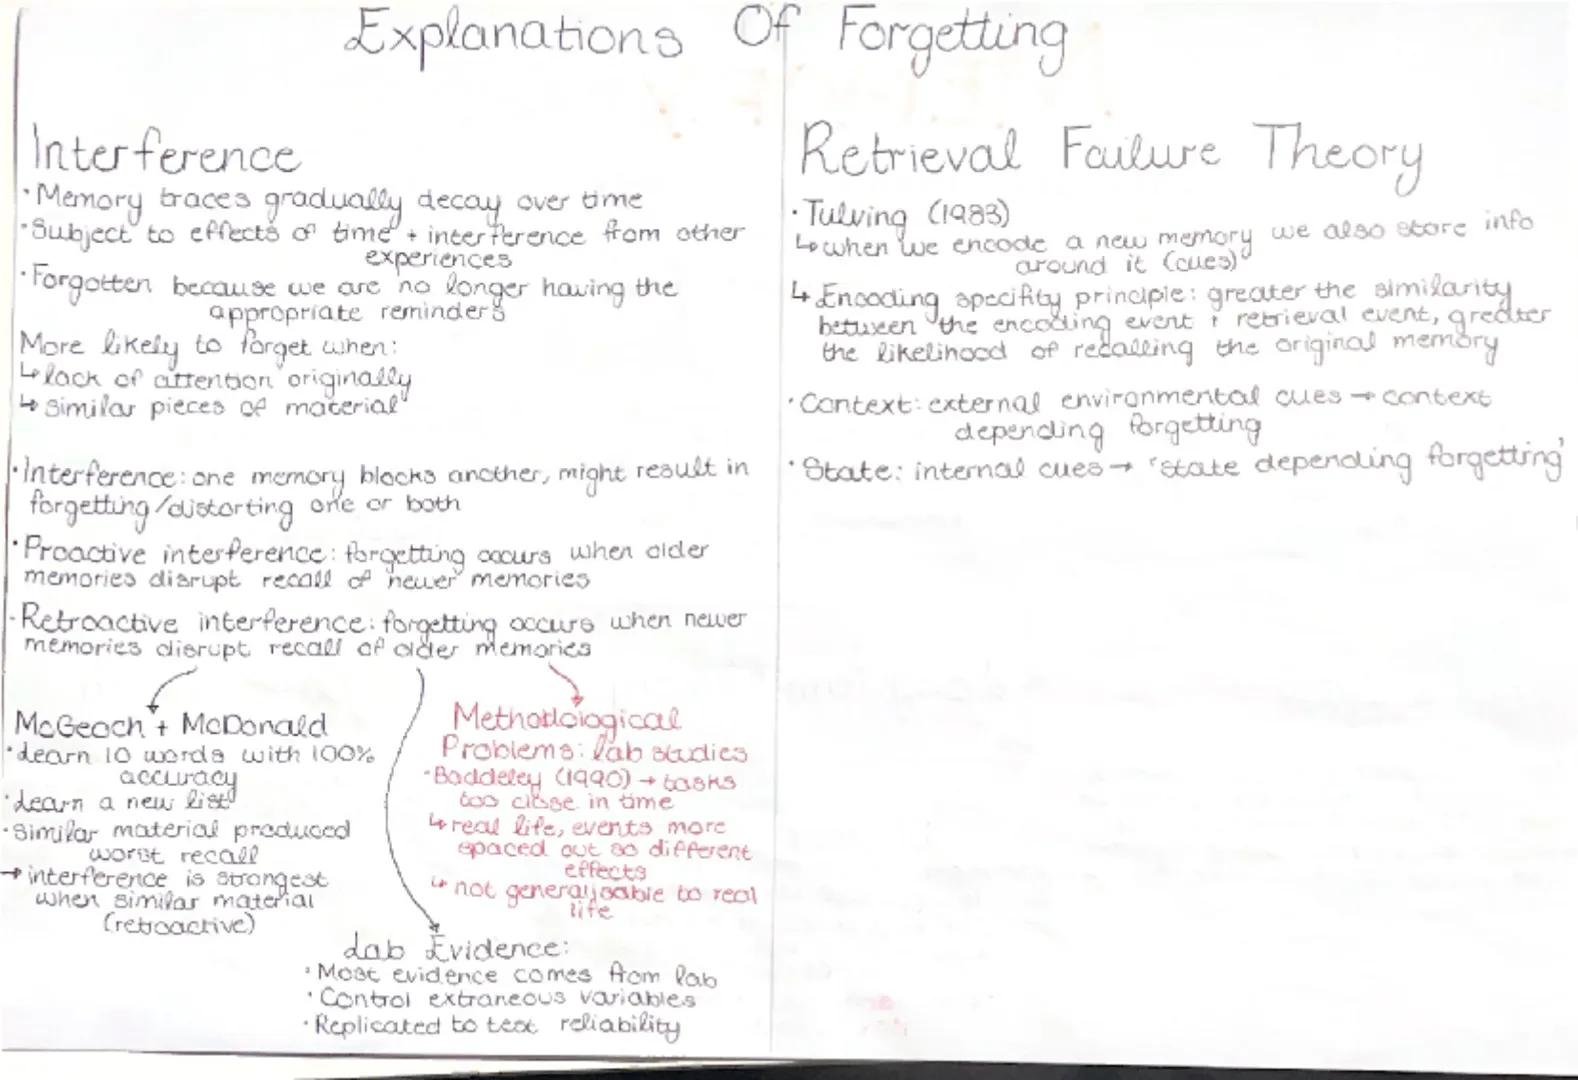 Explanations Of Forgetting
Interference
·Memory traces gradually decay over time
·Subject to effects of time + interference from other
experiences
·Forgotten because we are no longer having the
appropriate reminders
More likely to forget when:
↳lack of attention originally
↳ similar pieces of material
·Interference: one memory blocks another, might result in
forgetting/distorting one or both
·Proactive interference: forgetting occurs when older
memories disrupt recall of newer memories
·Retroactive interference: forgetting occurs when newer
memories disrupt recall of older memories
McGeoch + McDonald
·Learn 10 words with 100%
accuracy
·Learn a new list
·Similar material produced
worst recall
→ interference is strongest
when similar material
(retroactive)
Methodological
Problems: lab studies
·Baddeley (1990) → tasks
too close in time
↳ real life, events more
spaced out so different
effects
↳ not generalisable to real
life
Lab Evidence:
·Most evidence comes from lab
·Control extraneous variables
·Replicated to test reliability
Retrieval Failure Theory
·Tulving (1983)
↳when we encode a new memory we also store info
around it (cues)
↳ Encoding specifity principle: greater the similarity
between the encoding event + retrieval event, greater
the likelihood of recalling the original memory
·Context: external environmental cues → context
depending forgetting
·State: internal cues → 'state depending forgetting'